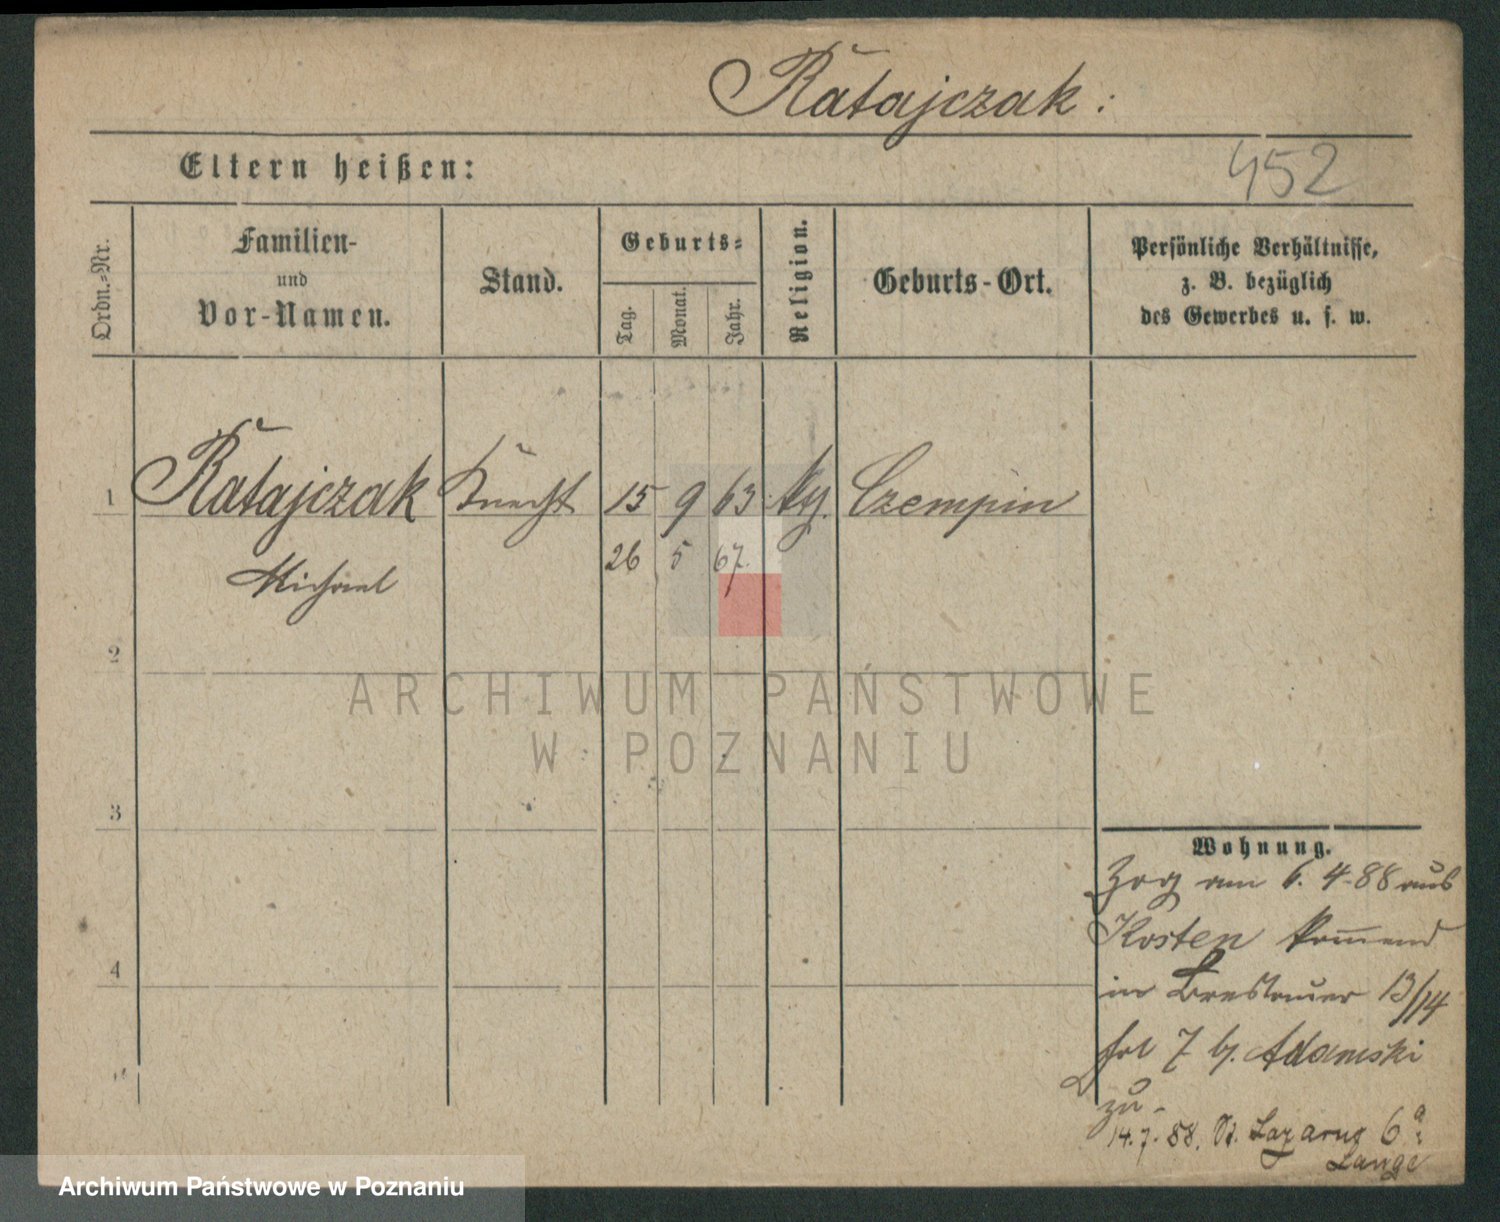 Ratajczak:
Eltern heißen:
452
Ordn.-Nr.
Familien-
und
Vor-Namen.
Stand.
Geburts-
Tag.
Monat.
Jahr.
Religion.
Geburts-Ort.
Persönliche Verhältnisse,
z. B. bezüglich
des Gewerbes u. s. w.
1 Ratajczak Knecht 15 9 63 Czempin
Michael 26 5 67.
2
ARCHIWUM PAŃSTWOWE
W POZNANIU
3
Wohnung.
Zog am 6. 4-88 aus
Kosten kommend
in Breslauer 13/14
7 b. Adamski
4
zu-
14.7.88. St. Lazarus 6a
Lange
Archiwum Państwowe w Poznaniu